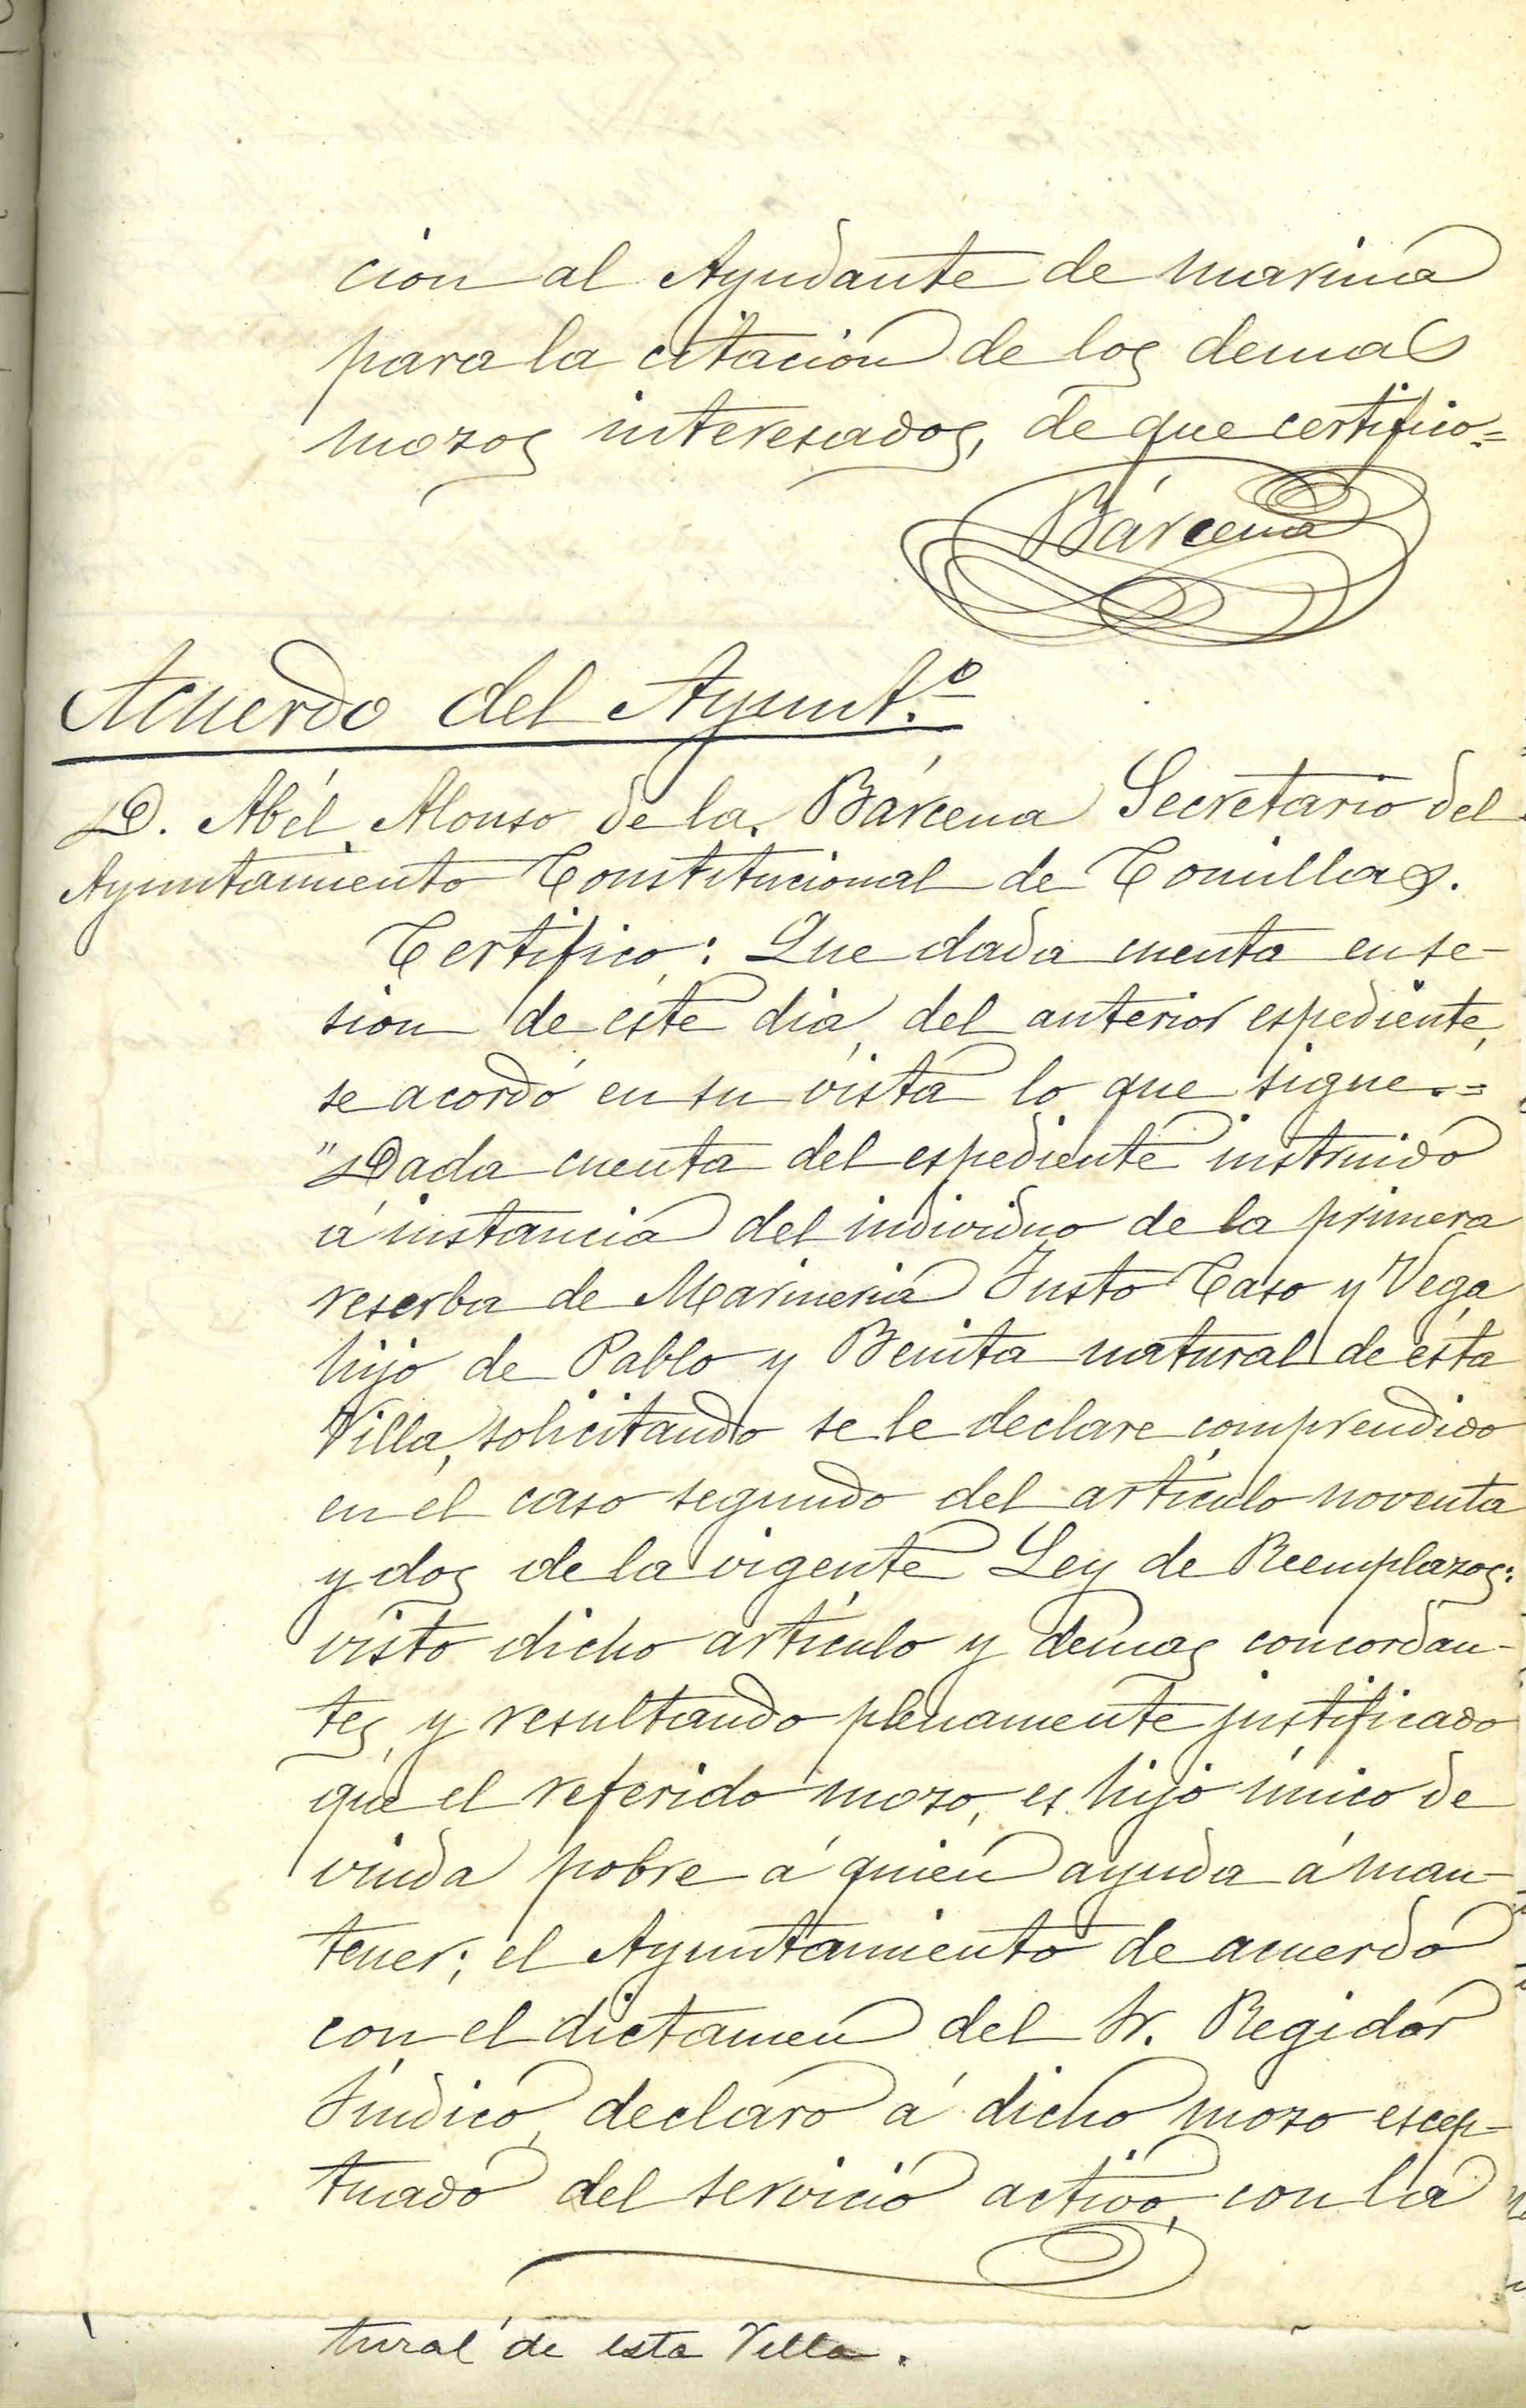 cion al Ayudante de marina
para la citacion de los demas
mozos interesados, de que certifico=
Bárcena
Acuerdo del Ayunt.º
D. Abél Alonso de la Bárcena Secretario del
Ayuntamiento Constitucional de Comillas.
Certifico: Que dada cuenta en se-
sion de éste dia, del anterior espediente,
se acordó en su vista lo que sigue.=
"Dada cuenta del espediente instruido
á instancia del individuo de la primera
reserba de Marineria Justo Caso y Vega
hijo de Pablo y Benita natural de ésta
Villa, solicitando se le declare comprendido
en el caso segundo del artículo noventa
y dos de la vigente Ley de Reemplazos:
visto dicho artículo y demas concordan-
tes y resultando plenamente justificado
que el referido mozo, es hijo único de
viuda pobre á quien ayuda á man-
tener; el Ayuntamiento de acuerdo
con el dictamen del Sr. Regidor
Síndico, declaro á dicho mozo escep-
tuado del servicio activo, con la
tural de esta Villa.